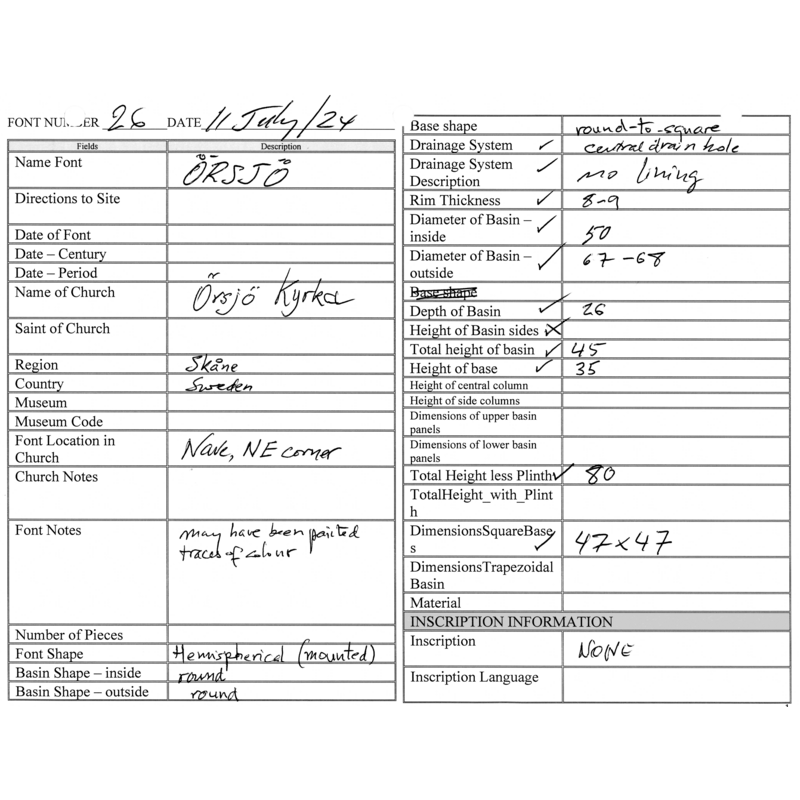 FONT NUMBER 26 DATE 11 July/24
Fields Description
Name Font ÖRSJÖ
Directions to Site
Date of Font
Date – Century
Date – Period
Name of Church Örsjö Kyrka
Saint of Church
Region Skåne
Country Sweden
Museum
Museum Code
Font Location in
Church Nave, NE corner
Church Notes
Font Notes may have been painted
traces of colour
Number of Pieces
Font Shape Hemispherical (mounted)
Basin Shape – inside round
Basin Shape – outside round
Base shape round-to-square
Drainage System ✓ central drain hole
Drainage System
Description ✓ no lining
Rim Thickness ✓ 8-9
Diameter of Basin –
inside ✓ 50
Diameter of Basin –
outside ✓ 67-68
Base shape
Depth of Basin ✓ 26
Height of Basin sides X
Total height of basin ✓ 45
Height of base ✓ 35
Height of central column
Height of side columns
Dimensions of upper basin
panels
Dimensions of lower basin
panels
Total Height less Plinth ✓ 80
TotalHeight_with_Plint
h
DimensionsSquareBase
s ✓ 47x47
DimensionsTrapezoidal
Basin
Material
INSCRIPTION INFORMATION
Inscription NONE
Inscription Language